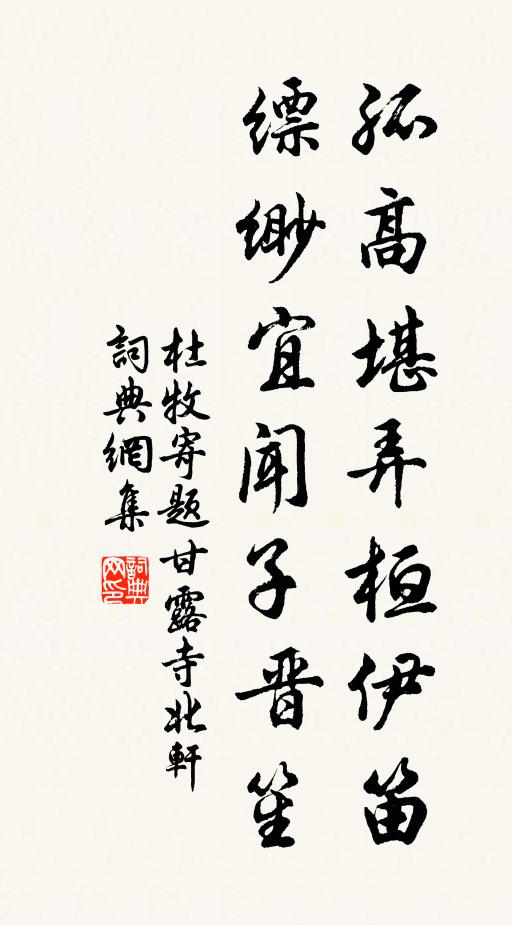 孤高堪弄桓伊笛
縹緲宜聞子晋笙
杜牧寄題甘露寺北軒
詞典網集
詞典网印